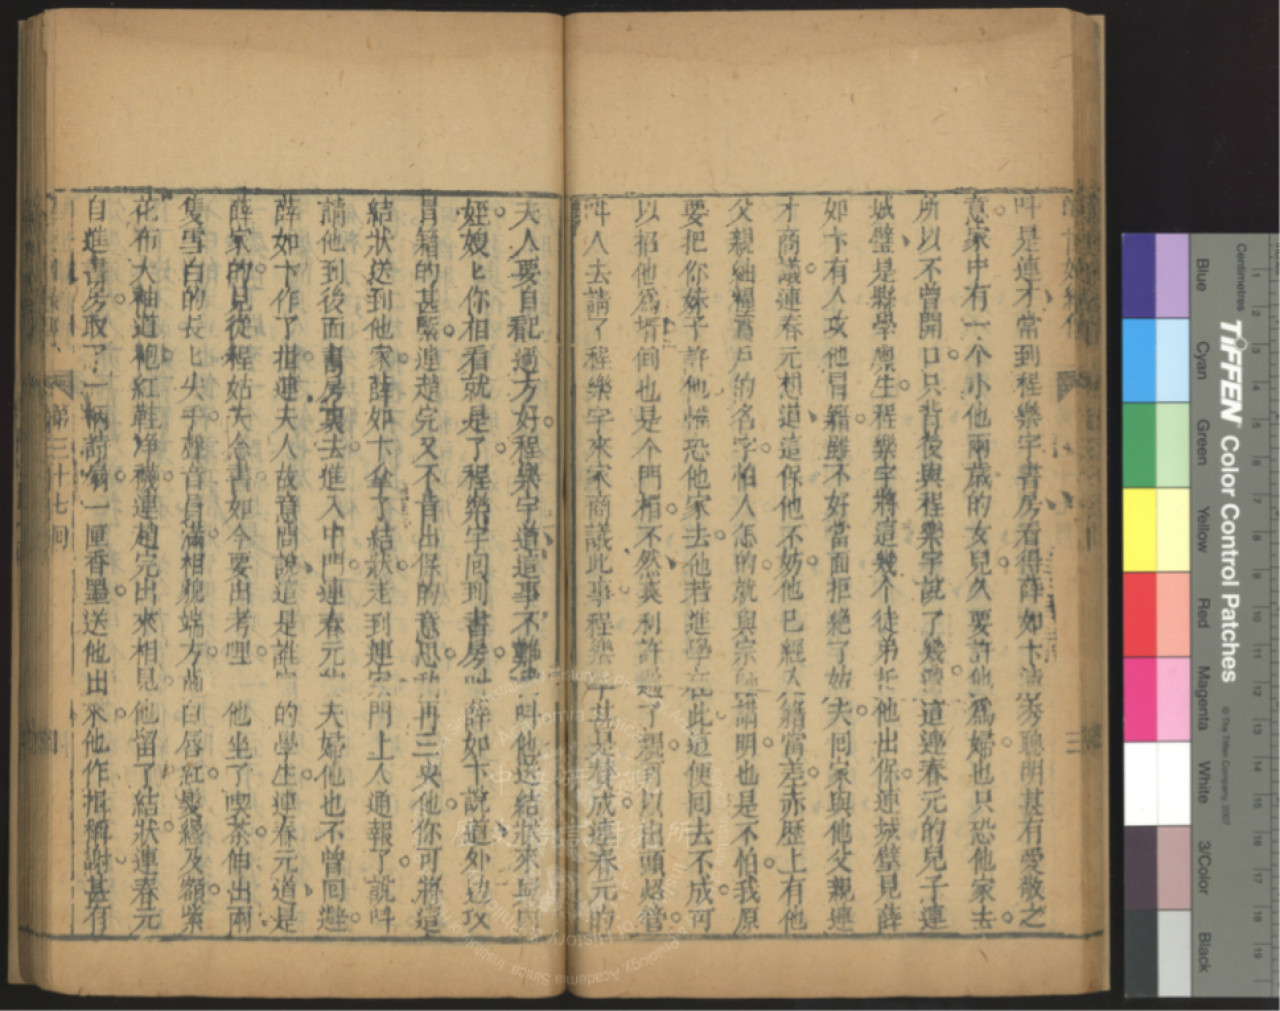 叫是連才常到程樂宇書房看得薛如卞清秀聰明甚有愛敬之
意家中有一个小他兩歲的女兒久要許他爲婦也只恐他家去
所以不曾開口只背後與程樂宇說了幾遭這連春元的兒子連
城璧是縣學廪生程樂宇將這幾个徒弟托他出保連城璧見薛
如卞有人攻他冒籍雖不好當面拒絶了姑夫回家與他父親連
才商議連春元想道這保他不妨他已經入籍當差赤歴上有他
父親紬糧富戸的名字怕人怎的就與宗師講明也是不怕我原
要把你妹子許他惟恐他家去他若進學在此這便回去不成可
以招他爲壻倒也是个門楣不然爽利許過了親可以出頭照管
叫人去請了程樂宇來家商議此事程樂宇甚是替成連春元的
夫人要自己看過方好程樂宇道這事不難我叫他送結狀來與
姪嫂匕你相看就是了程樂宇回到書房叫薛如卞說道外边攻
冒籍的甚緊連趙完又不肯出保的意思我再三央他你可將這
結狀送到他家薛如卞拿了結狀走到連家門上人通報了說叫
請他到後面書房裏去進入中門連春元夫婦他也不曾回避
薛如卞作了揖連夫人故意問說這是誰家的學生連春元道是
薛家的見從程姑夫念書如今要出考哩他坐了喫茶伸出兩
隻雪白的長匕尖手聲音員滿相貌端方齒白唇紅髮纔及額紫
花布大袖道袍紅鞋凈襪連趙完出來相見他留了結狀連春元
自進書房取了一柄詩扇一匣香墨送他出來他作揖稱謝甚有
第三十七回
三
Centimetres
TIFFEN Color Control Patches
© The Tiffen Company, 2007
Blue
Cyan
Green
Yellow
Red
Magenta
White
3/Color
Black